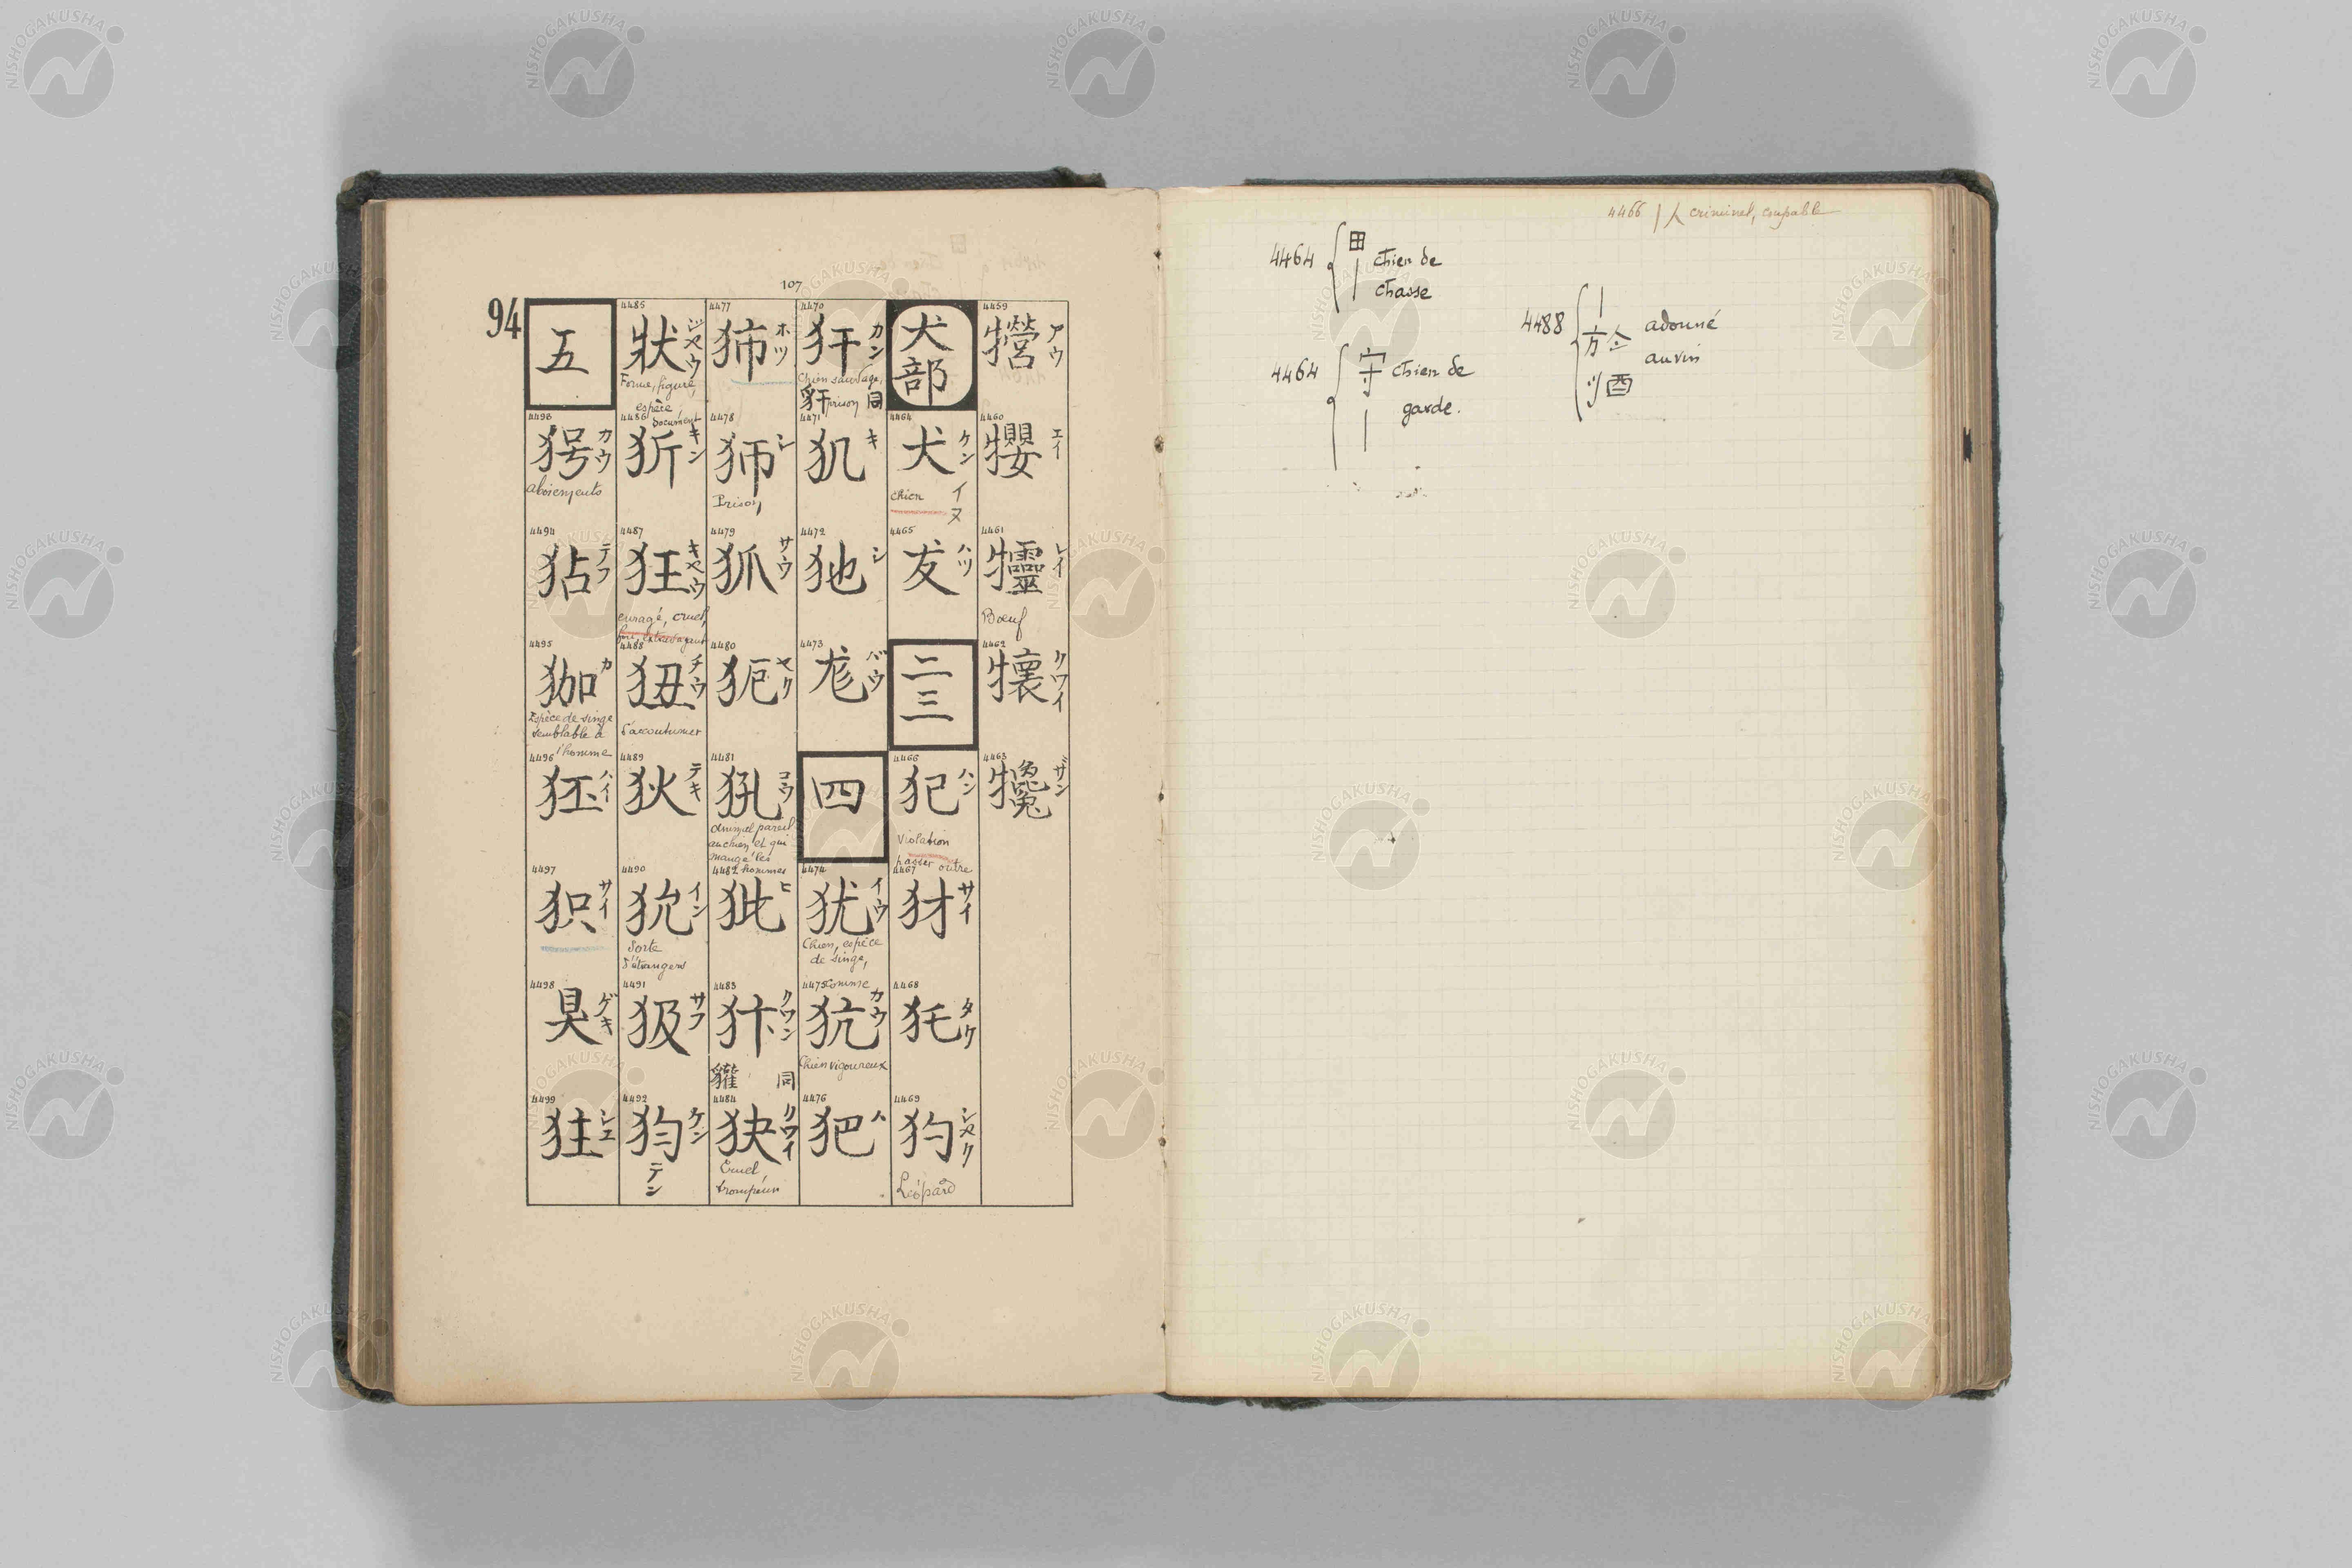 107
94
4459
犖 アウ
4460
エイ
4461
レイ
Bœuf
4462
クワイ
4463
ザン
犬部
4464
犬 ケン
イヌ
chien
4465
犮 ハツ
二三
4466
犯 ハン
Violation
passer outre
4467
犲 サイ
4468
タク
4469
犳 シヤク
Léopard
4470
犴 カン
Chien sauvage,
豻 prison 同
4471
犰 キ
4472
シ
4473
尨 バウ
四
4474
犹 イウ
Chien, espèce
de singe,
comme
4475
犺 カウ
Chien vigoureux
4476
犯 ハ
4477
ホツ
4478
シ
Prison,
4479
サウ
4480
ヤク
4481
コウ
animal pareil
au chien et qui
mange les
hommes
4482
ヒ
4483
犿 クワン
貛 同
4484
クワイ
Cruel
trompeur
4485
狀 ジヤウ
Forme, figure,
espèce,
document
4486
狾 キン
4487
狂 キヤウ
enragé, cruel,
fou, extravagant
4488
狃 チウ
S'accoutumer
4489
狄 テキ
4490
狁 イン
Sorte
d'étrangers
4491
サフ
4492
ケン
テン
五
4493
カウ
aboiements
4494
テフ
4495
カ
Espèce de singe
semblable à
l'homme
4496
狉 ハイ
4497
サイ
4498
狊 ゲキ
4499
シユ
4466 | 人 criminel, coupable
4464 田 | chien de
chasse
4464 守 | chien de
garde.
4488 | adonné
au vin
於
酒